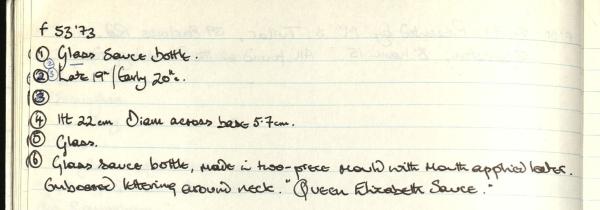 f 53'73
① Glass Sauce bottle.
② Late 19th/Early 20thc.
③
④ Ht 22cm Diam across base 5.7cm.
⑤ Glass.
⑥ Glass sauce bottle, made in two-piece mould with mouth applied later.
Embossed lettering around neck. "Queen Elizabeth Sauce."